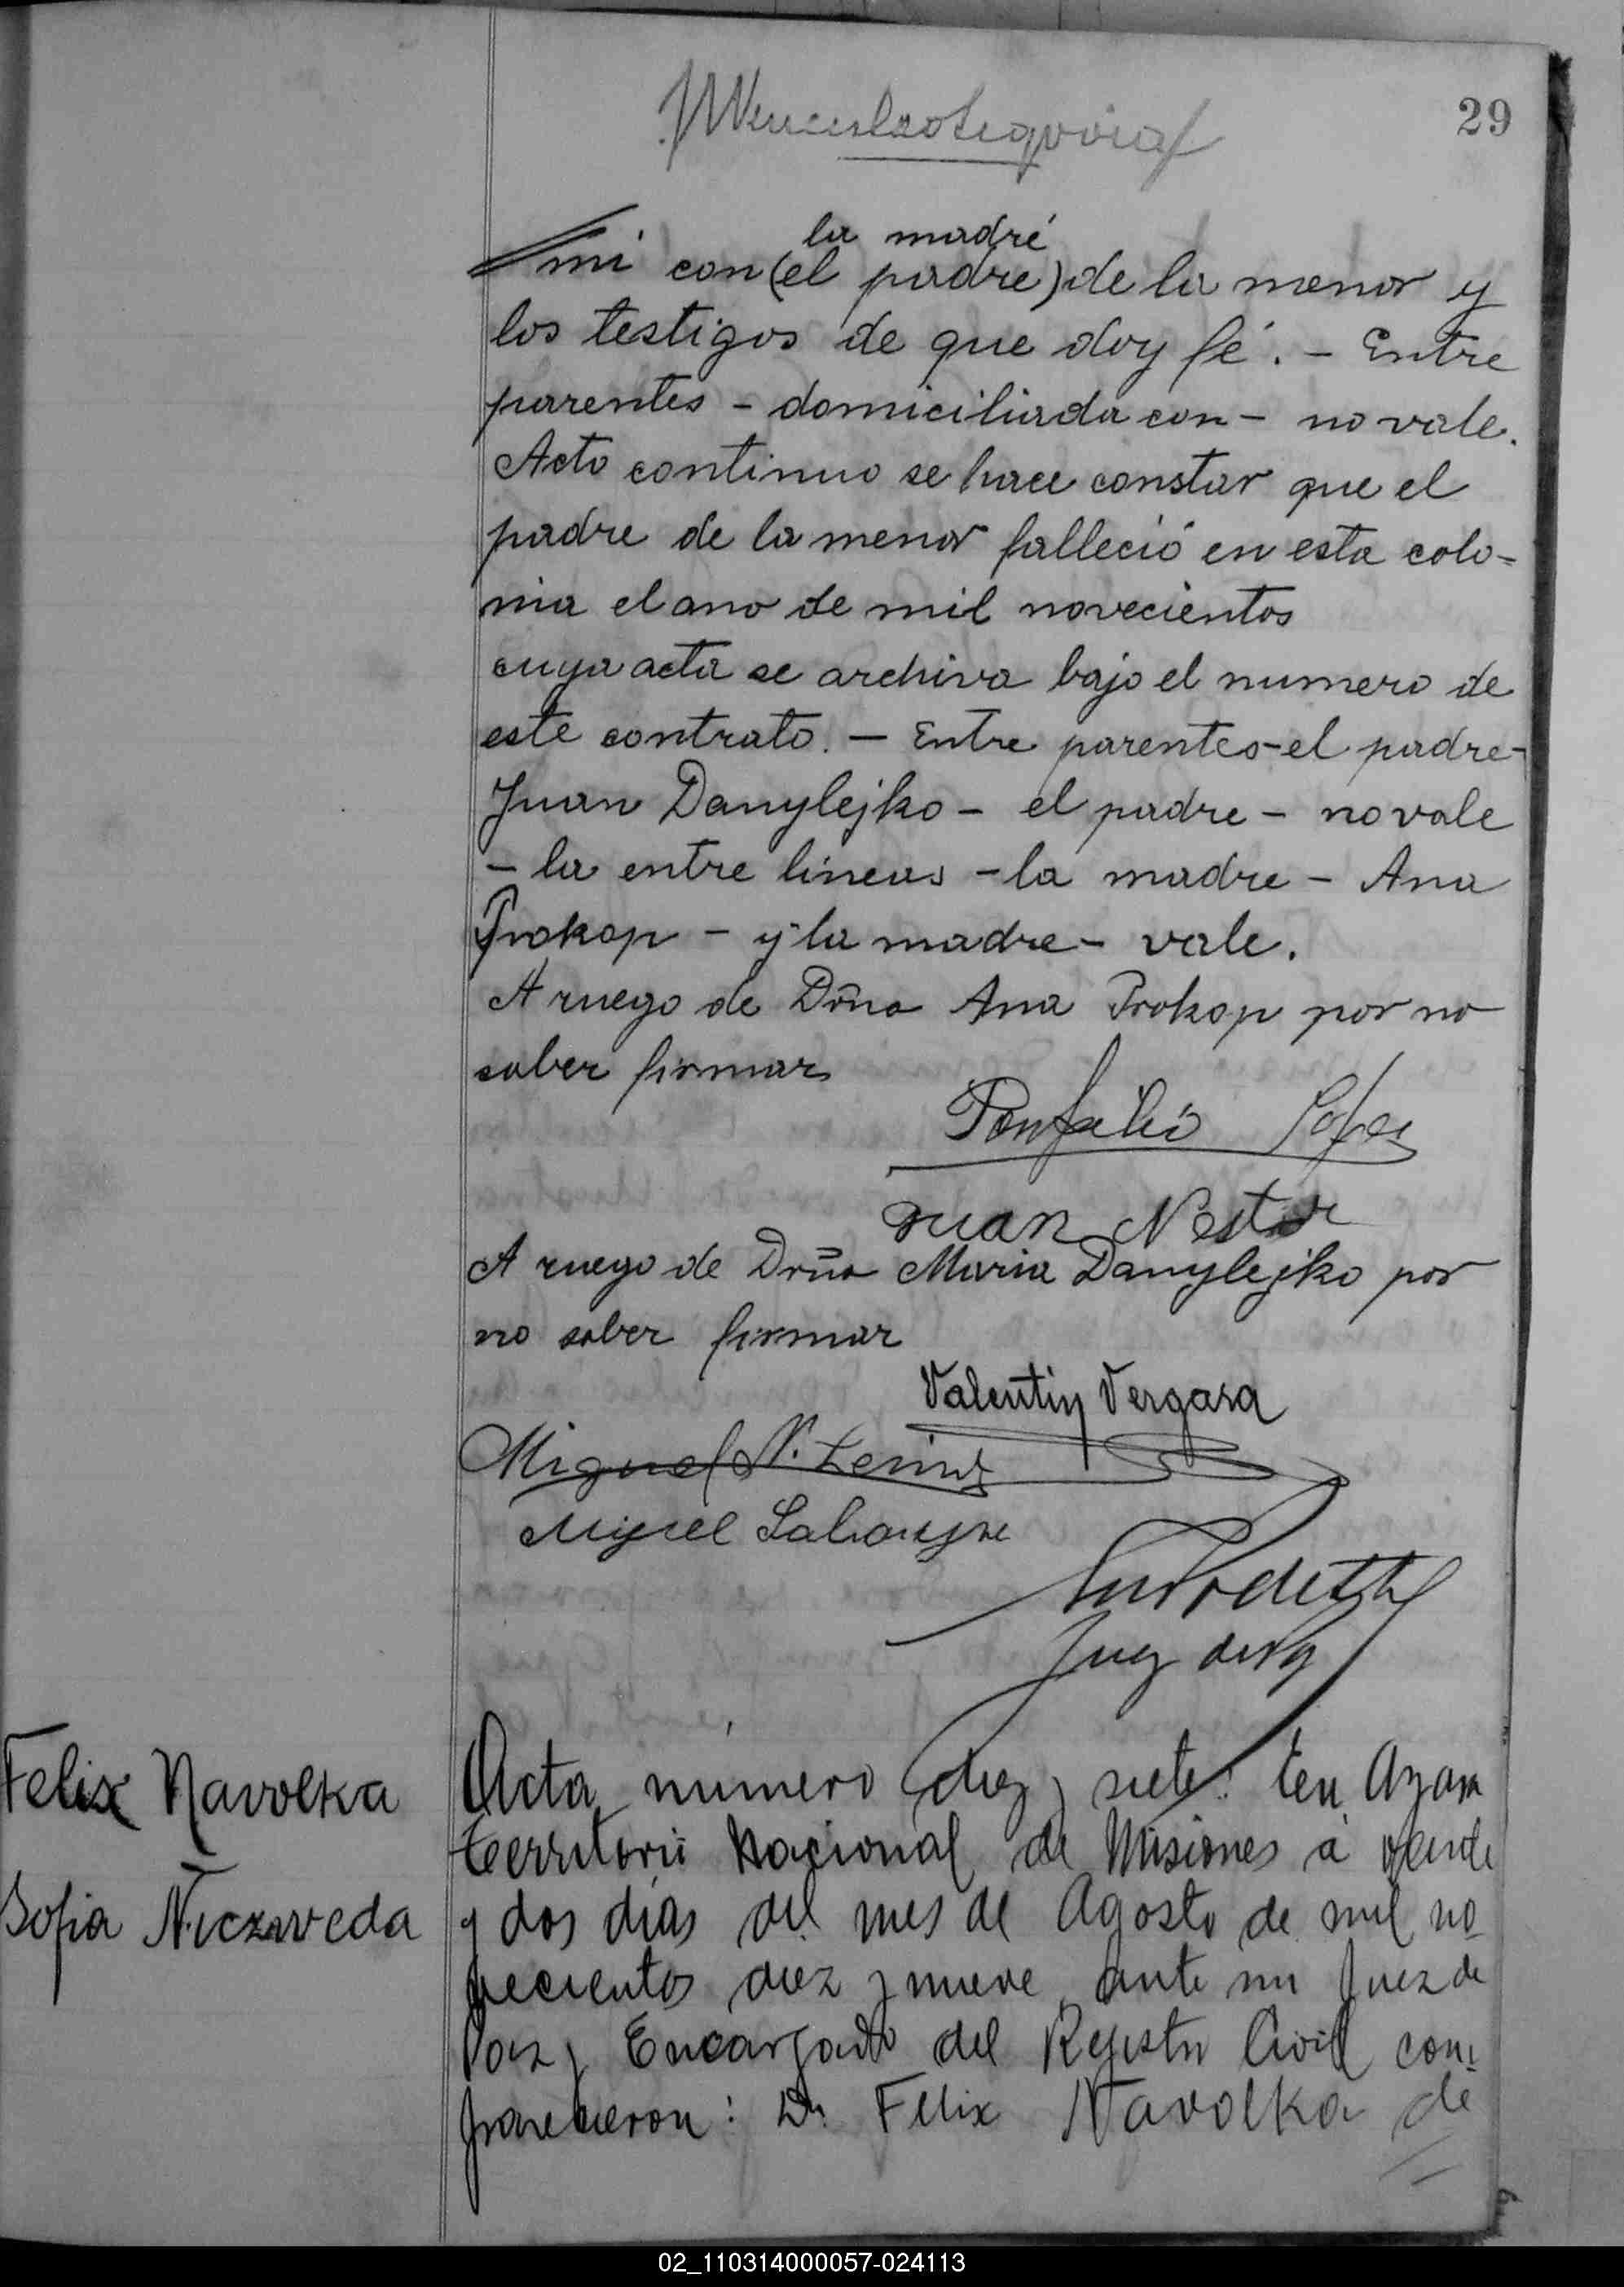 29
la madré
mi con (el padre) de la menor y
los testigos de que doy fé. - Entre
parentes - domiciliada con - no vale.
Acto continuo se hace constar que el
padre de la menor falleció en esta colo-
nia el ano de mil novecientos
cuya acta se archiva bajo el numero de
este contrato. - Entre parentes - el padre -
Juan Danylejko - el padre - no vale
- la entre lineas - la madre - Ana
Prokop - y la madre - vale.
A ruego de Dña Ana Prokop por no
saber firmar
Juan Nestor
A ruego de Dña Maria Danylejko por
no saber firmar
Valentin Vergara
Miguel N.
Miguel
Juez de
Felix Navolka
Sofia Niczaveda
Acta número diez y siete: En Azara
territorio Nacional de Misiones á veinte
y dos días del mes de Agosto de mil no
vecientos diez y nueve ante mi Juez de
Paz y Encargado del Registro Civil com
parecieron: Dn Felix Navolka de
02_110314000057-024113